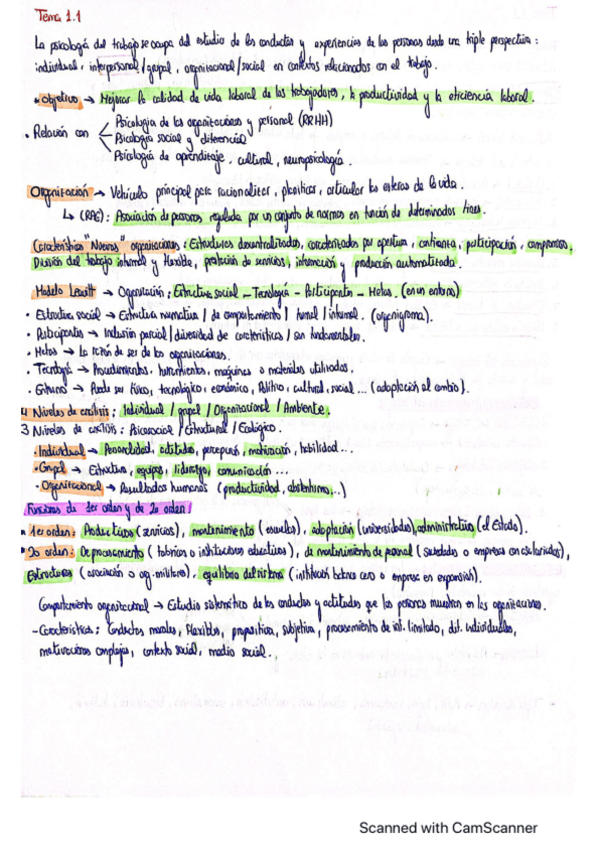 Tema 1.1
La psicología del trabajo se ocupa del estudio de las conductas y experiencias de las personas desde una triple perspectiva:
individual, interpersonal/grupal, organizacional/social en contextos relacionados con el trabajo.
• Objetivo → Mejorar la calidad de vida laboral de los trabajadores, la productividad y la eficiencia laboral.
Psicología de las organizaciones y personal (RRHH)
• Relación con Psicología social y diferencial
Psicología de aprendizaje, cultural, neuropsicología.
Organización → Vehículo principal para racionalizar, planificar, articular las esferas de la vida.
↳ (RAE): Asociación de personas regulada por un conjunto de normas en función de determinados fines.
Características "Nuevas" organizaciones: Estructuras descentralizadas, caracterizadas por apertura, confianza, participación, compromiso,
División del trabajo informal y flexible, de servicios, información y producción automatizada.
Modelo Leavitt → Organización: Estructura social – Tecnología – Participantes – Metas. (en un entorno)
• Estructura social → Estructura normativa / de comportamiento / formal / informal. (organigrama).
• Participantes → Inclusión parcial / diversidad de características / son fundamentales.
• Metas → La razón de ser de las organizaciones.
• Tecnología → Procedimientos, herramientas, máquinas o materiales utilizados.
• Entorno → Puede ser físico, tecnológico, económico, Político, cultural, social... (adaptación al cambio).
4 Niveles de análisis: Individual / grupal / Organizacional / Ambiente.
3 Niveles de análisis: Psicosocial / Estructural / Ecológico.
• Individual → Personalidad, actitudes, percepción, motivación, habilidad...
• Grupal → Estructura, equipos, liderazgo, comunicación...
• Organizacional → Resultados humanos (productividad, absentismo,...)
Funciones de 1er orden y de 2o orden:
• 1er orden: Productivas (servicios), mantenimiento (escuelas), adaptación (universidades), administrativa (el Estado).
• 2o orden: De procesamiento (fábricas o instituciones educativas), de mantenimiento de personal (sociedades o empresas con asalariados),
Estructuras (asociación o org. militares), equilibrio del sistema (institución balance cero o empresa en expansión).
Comportamiento organizacional → Estudio sistemático de las conductas y actitudes que las personas muestran en las organizaciones.
– Características: Conductas morales, flexibles, propositiva, subjetiva, procesamiento de inf. limitado, dif. individuales,
motivaciones complejas, contexto social, medio social.
Scanned with CamScanner